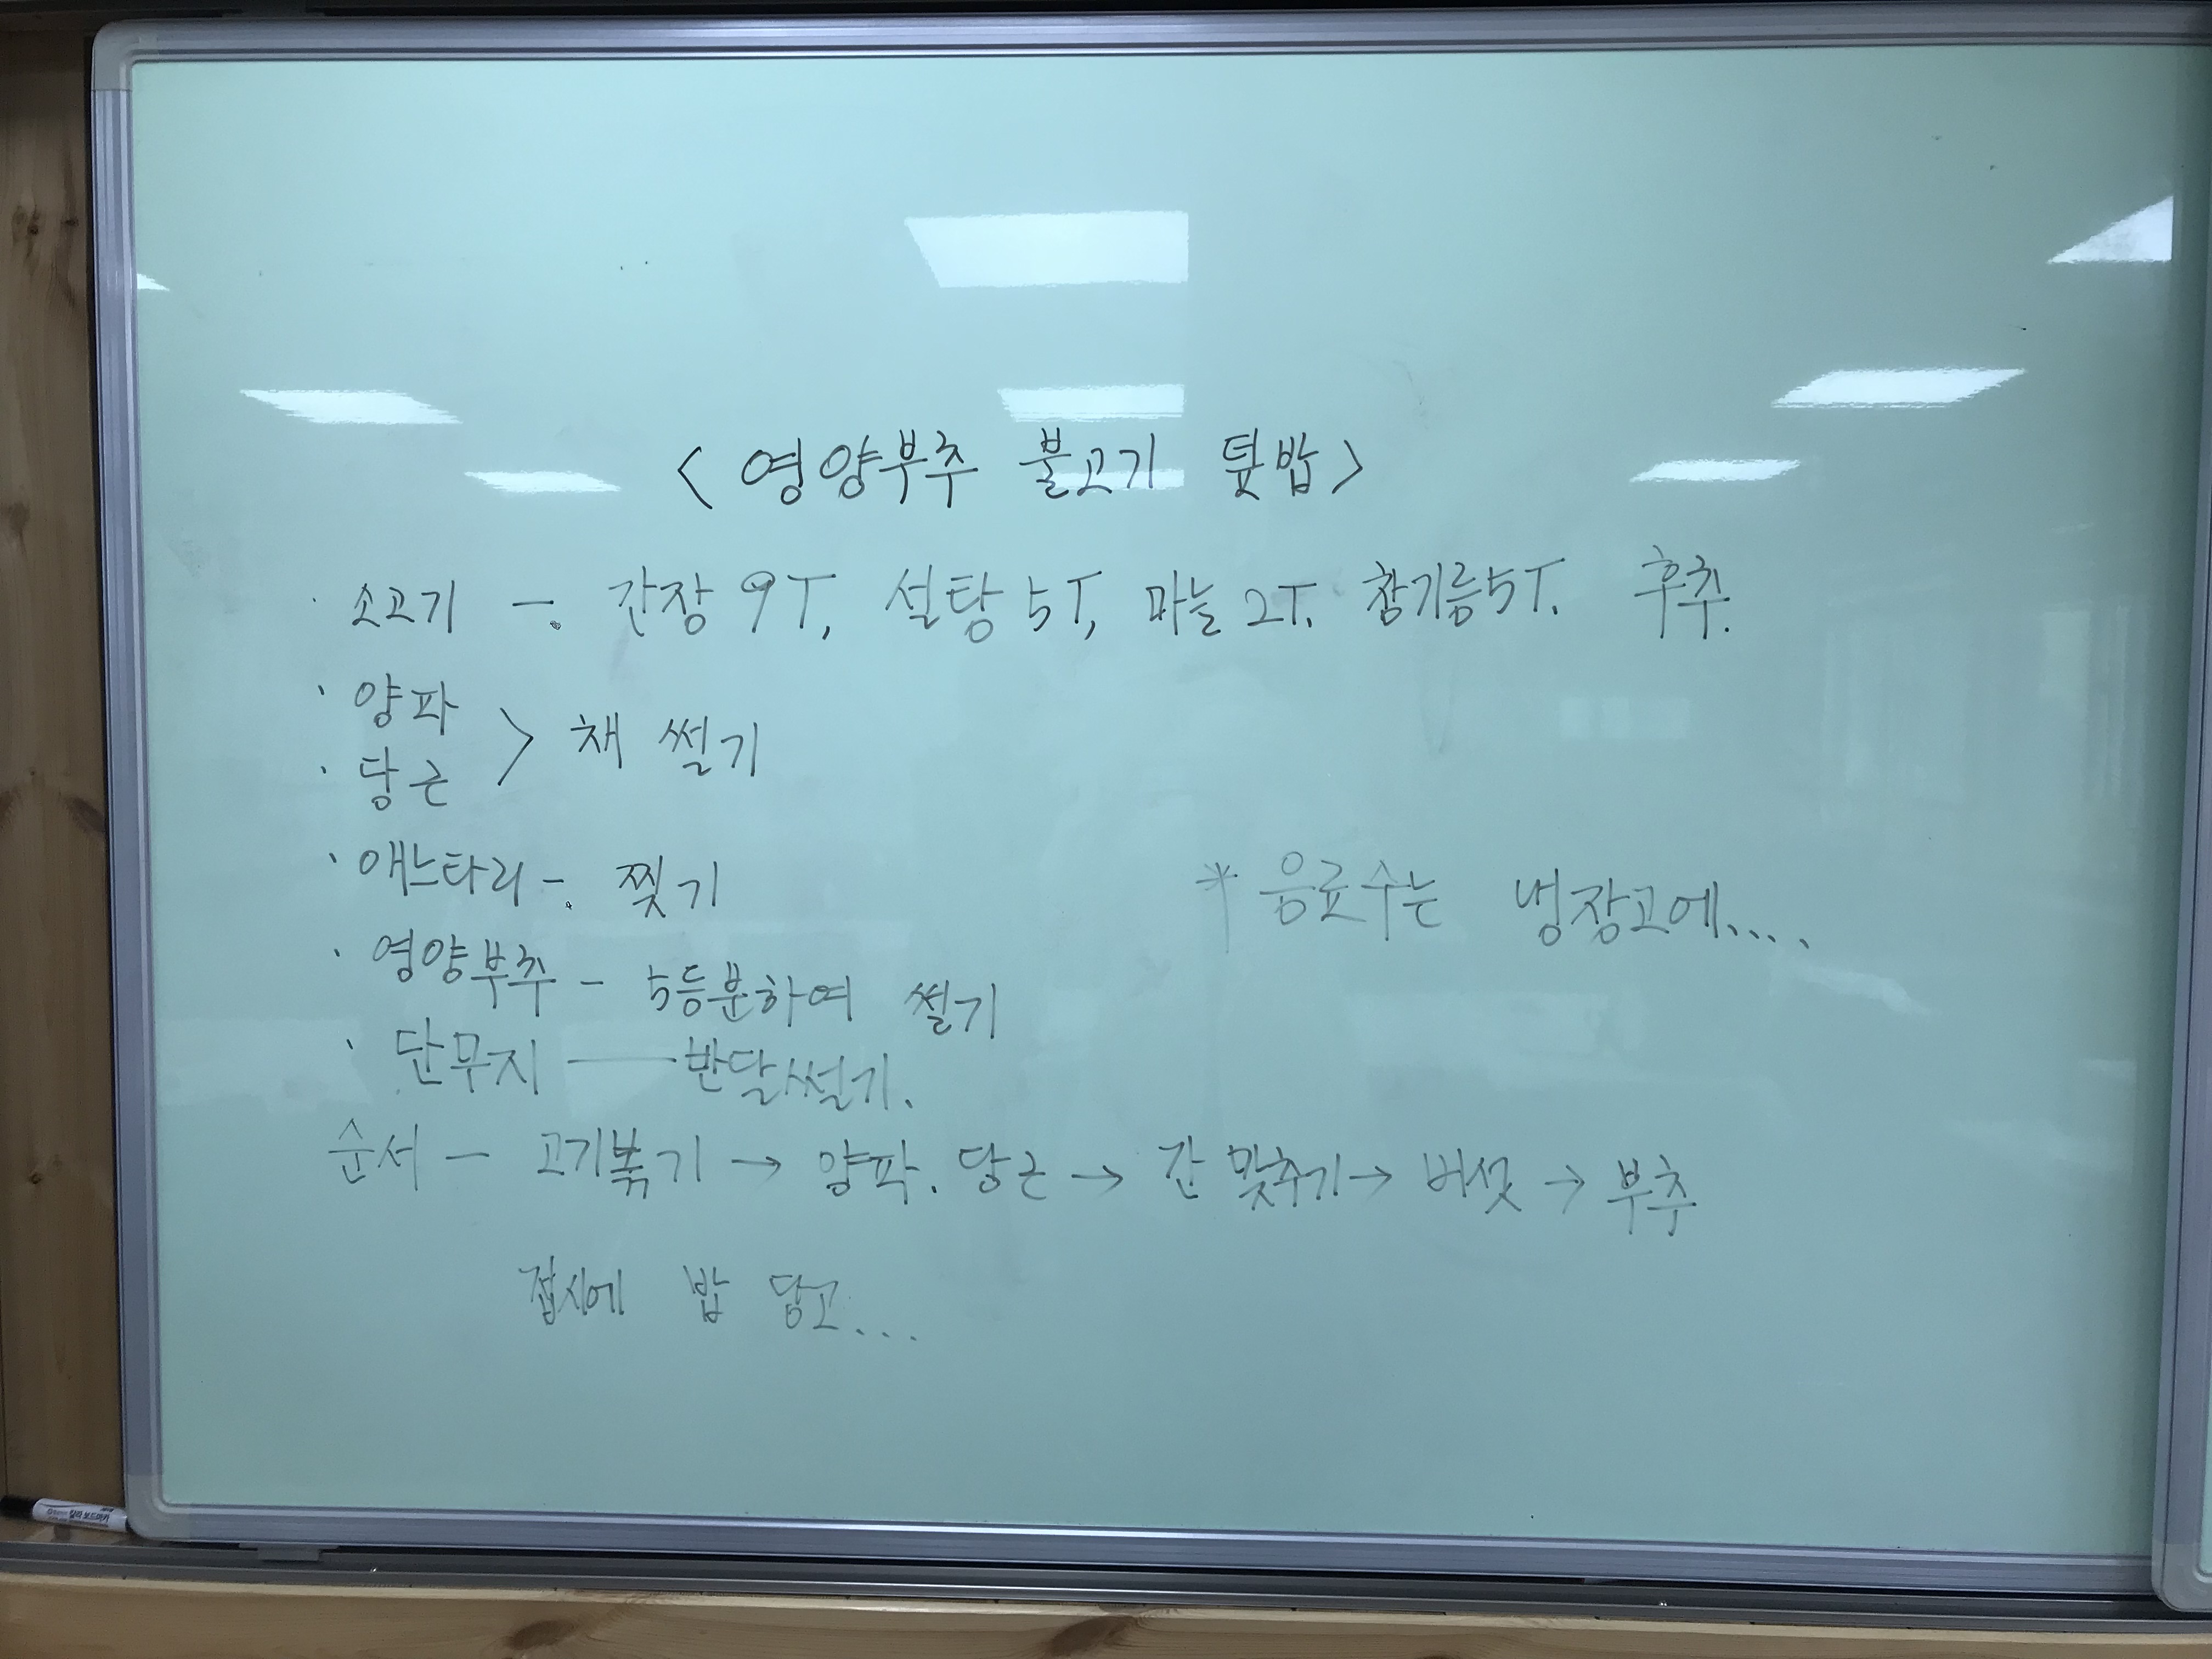 < 영양부추 불고기 덮밥 >
· 소고기 - 간장 9T, 설탕 5T, 마늘 2T. 참기름5T. 후추.
· 양파
> 채 썰기
· 당근
· 애느타리 - 찢기
* 음료수는 냉장고에....
· 영양부추 - 5등분하여 썰기
· 단무지 — 반달썰기.
순서 - 고기볶기 → 양파. 당근 → 간 맞추기 → 버섯 → 부추
접시에 밥 담고...